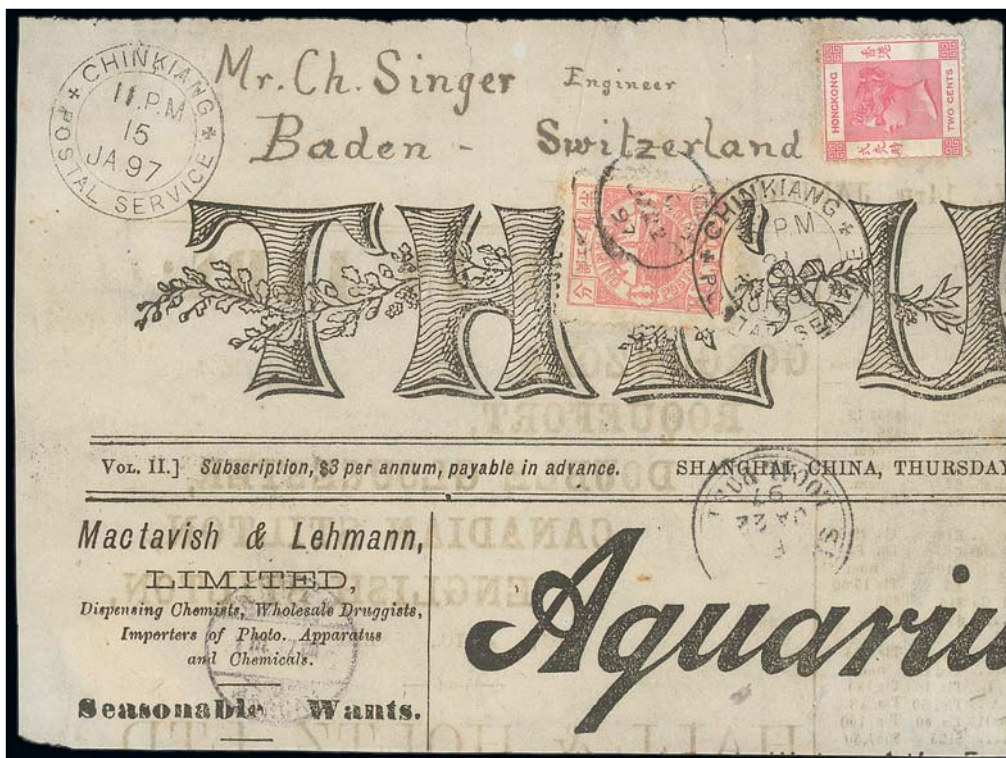 CHINKIANG
POSTAL SERVICE
11 P.M
15
JA 97
Mr. Ch. Singer Engineer
Baden - Switzerland
香港
HONGKONG
TWO CENTS
CHINKIANG
P.M
分
THE U
VOL. II.] Subscription, $3 per annum, payable in advance. SHANGHAI, CHINA, THURSDAY
LOCAL POST
JA 22
97
Mactavish & Lehmann,
LIMITED,
Dispensing Chemists, Wholesale Druggists,
Importers of Photo. Apparatus
and Chemicals.
Seasonable Wants.
Aquariu